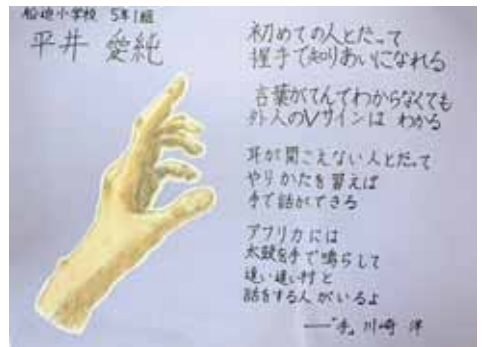 船迫小学校 5年1組
平井 愛純
初めての人とだって
握手で知りあいになれる
言葉がてんでわからなくても
外人のVサインは わかる
耳が聞こえない人とだって
やりかたを習えば
手で話ができる
アフリカには
太鼓を手で鳴らして
遠い遠い村と
話をする人がいるよ
──「手」川崎 洋